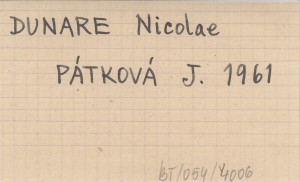 DUNARE Nicolae
PÁTKOVÁ J. 1961
BT/054/4006